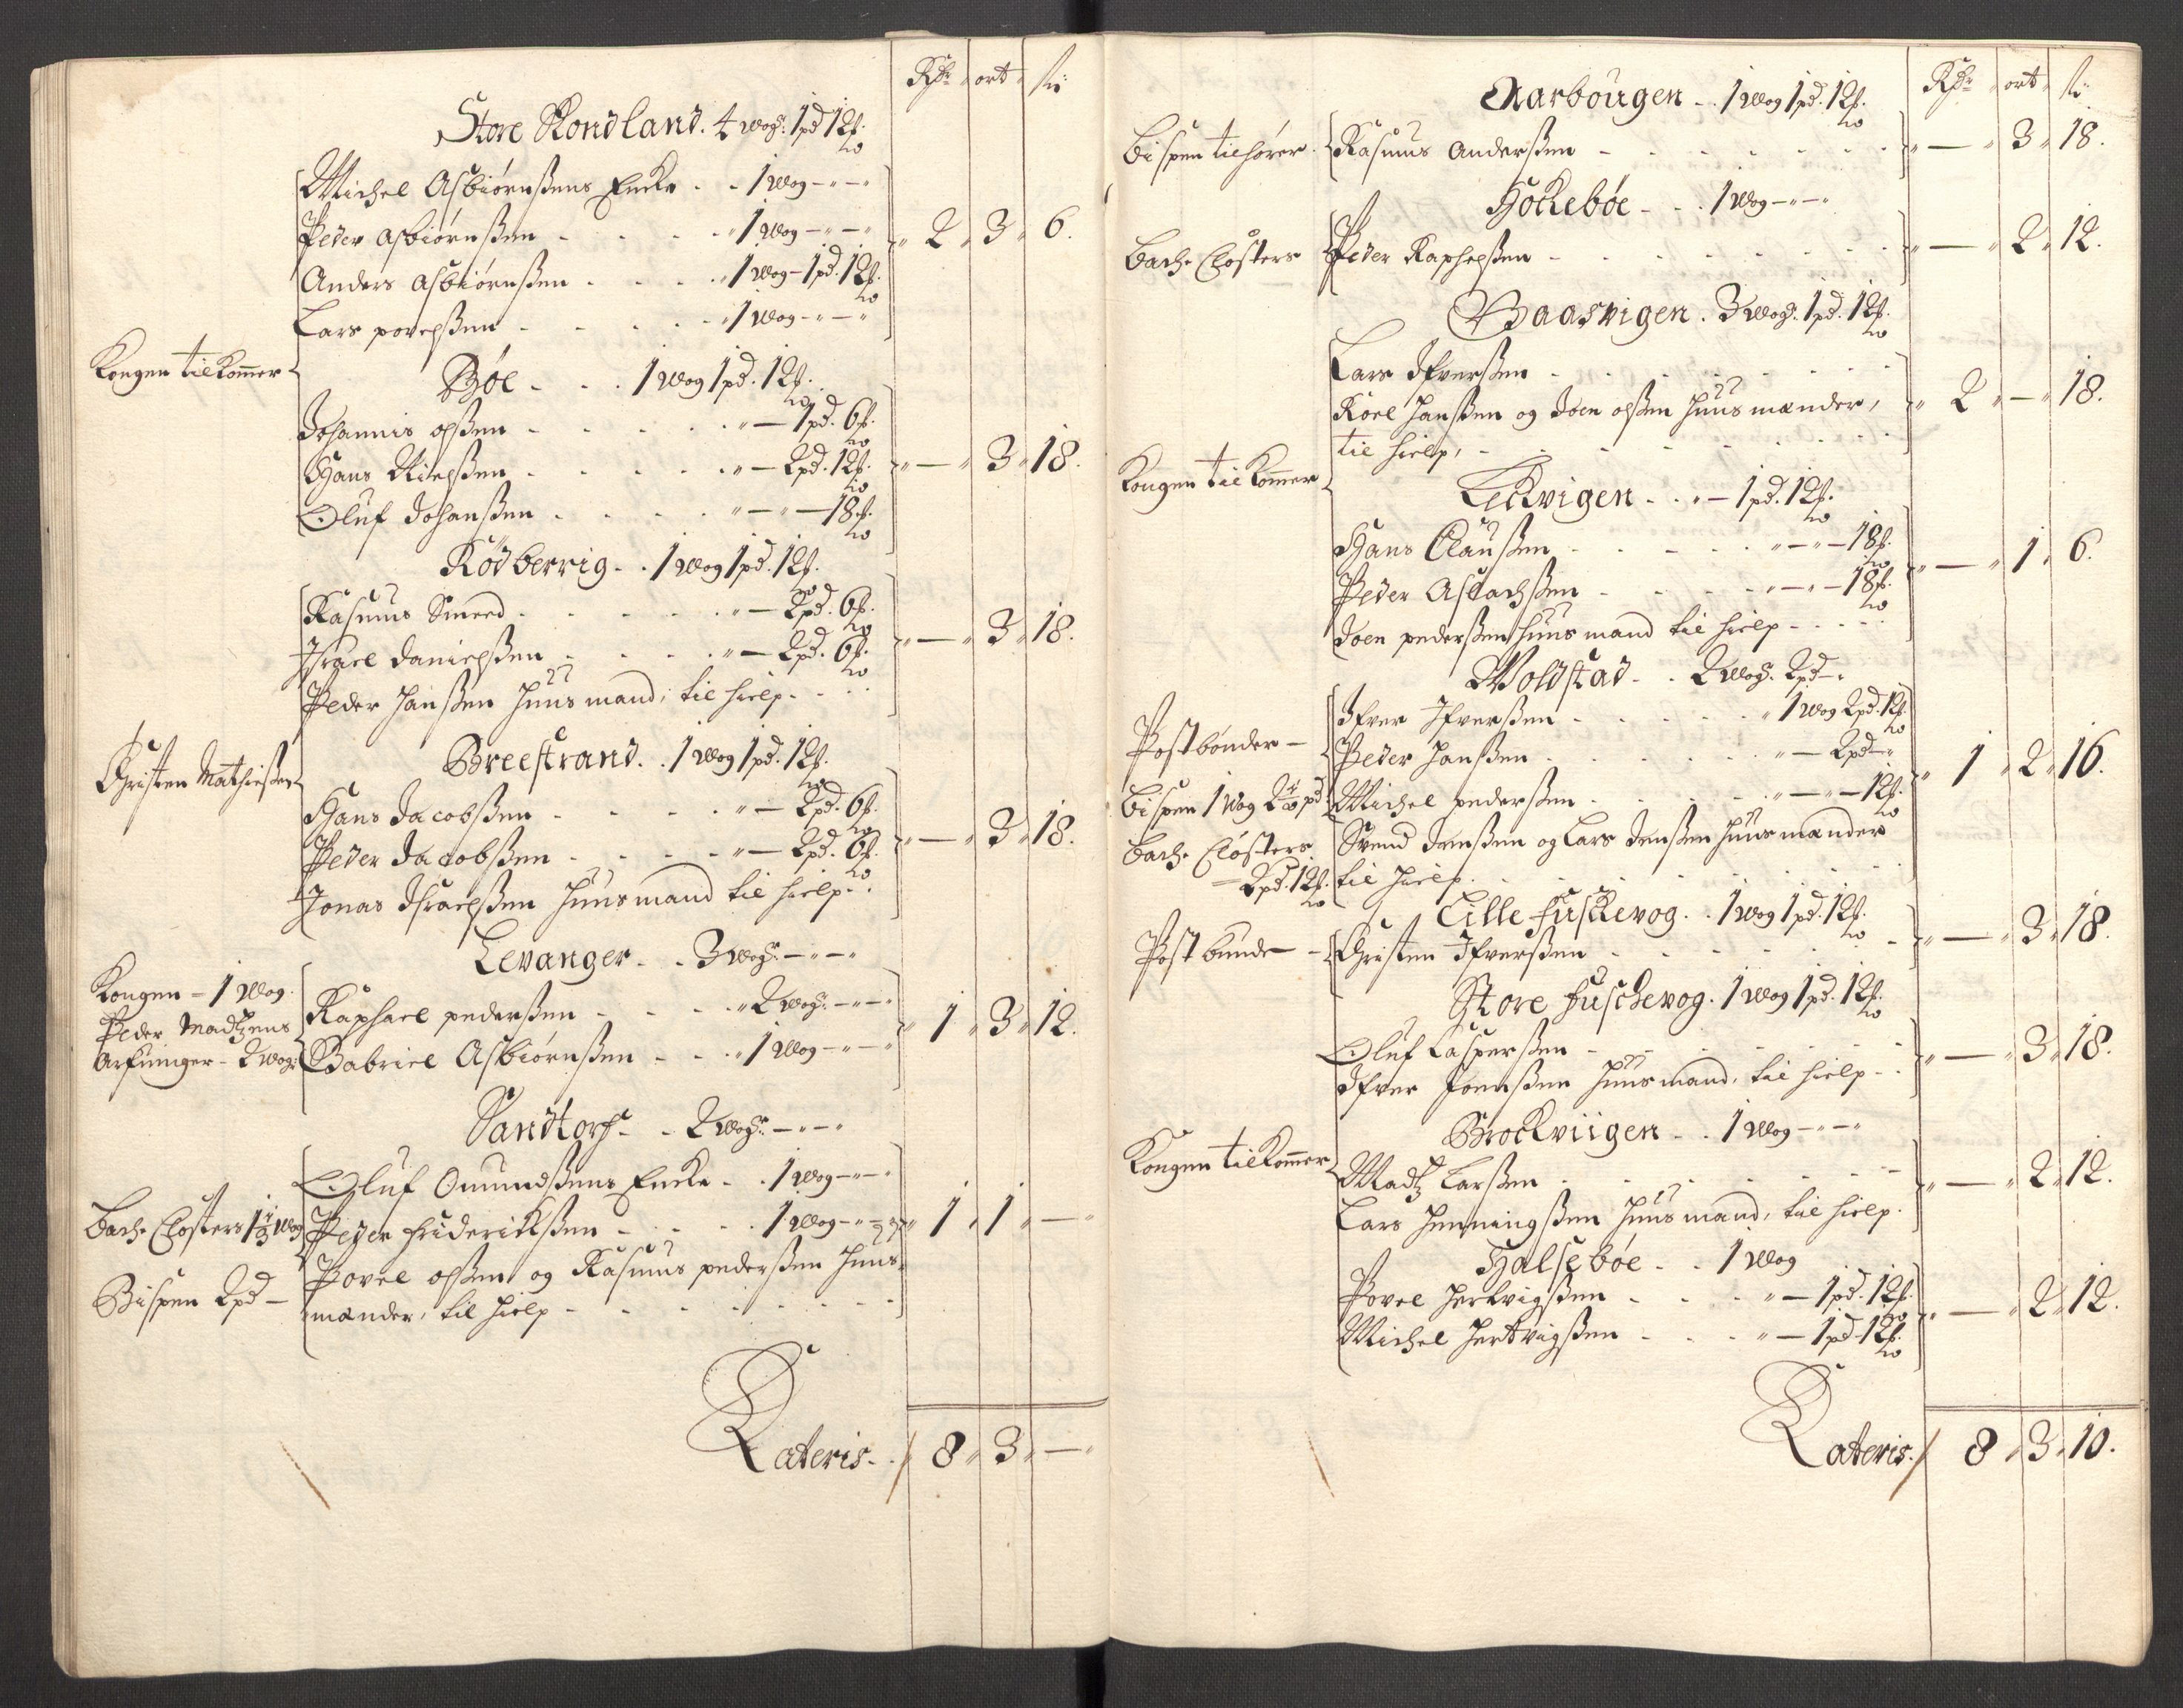 Rdr ort ſʒ
Store Rondland. 4 wogr. 1 pd 12 ℔.
Michel Asbiørnßens Encke - - 1 wog - " - "
Peder Asbiørnßen - - - 1 wog - " - " 2 " 3 " 6.
Anders Asbiørnßen - - - 1 wog - 1 pd. 12 ℔.
Lars povelßen - - - 1 wog - " - "
Kongen tilkommer
Bøe - - - 1 wog 1 pd. 12 ℔.
Johannis olßen - - - " — 1 pd. 6 ℔.
Hans Nielßen - - - " — 2 pd. 12 ℔. " — " 3 " 18.
Oluf Johanßen - - - " — " — 18 ℔.
Rødberrig - . 1 wog 1 pd. 12 ℔.
Rasmus Smeed - - - " — 2 pd. 6 ℔.
Israel Danielßen - - - " — 2 pd. 6 ℔. " — " 3 " 18.
Peder Hanßen Huusmand, til hielp - - -
Christen Mathießen
Breestrand. . 1 wog 1 pd. 12 ℔.
Hans Jacobßen - - - " — 2 pd. 6 ℔.
Peder Jacobßen - - - " — 2 pd. 6 ℔. " — " 3 " 18.
Jonas Israelßen Huusmand til hielp - .
Levanger - . 3 wogr. — " — "
Kongen - 1 wog.
Peder Madtzens
Arfuinger - 2 wogr.
Raphael pederßen - - - " 2 wogr. — " — " 1 " 3 " 12.
Gabriel Asbiørnßen - - - " 1 wog — " — "
Sandtorf - - 2 wogr. — " — "
Oluf Omundßens Encke - . 1 wog — " — "
Bach Closters 1 1/3 wog
Peder Friderickßen - - - 1 wog — " — " 1 " 1 " — "
Bispen 2 pd —
Povel olßen og Rasmus pederßen Huus-
mænder, til hielp - - -
Lateris - . 8 " 3 " — "
Rdr ort ſʒ
Aarbougen - . 1 wog 1 pd. 12 ℔.
Bispen tilhører. Rasmus Anderßen - - - " — " 3 " 18.
Hockebøe - - . 1 wog — " — "
Bach Closters Peder Raphelßen - - - " — " 2 " 12.
Baasvigen. 3 wogr. 1 pd. 12 ℔.
Lars Ifverßen - - -
Roel Hanßen og Joen olßen Huusmænder, " 2 " — " 18.
til hielp, - - -
Kongen tilkommer
Leckvigen - . " — 1 pd. 12 ℔.
Hans Claußen - - - " — " — 18 ℔.
Peder Aslachßen - - - " — " — 18 ℔. " — " 1 " 6.
Joen pederßen Huusmand til hielp - - - -
Woldstad - . 2 wogr. 2 pd — "
Ifver Ifverßen - - - " 1 wog 2 pd. 12 ℔
Postbønder —
Peder Hanßen - - - " — 2 pd — "
Bispen 1 wog
Michel pederßen - - - " — " — 12 ℔. " 1 " 2 " 16.
Bach Closters
— 2 pd. 12 ℔.
Svend Jenßen og Lars Jenßen Huusmænder
til hielp - - -
Lille Fuskevog - . 1 wog 1 pd. 12 ℔.
Post bunde — Christen Ifverßen - - - " — " 3 " 18.
Store Fuschevog. 1 wog 1 pd. 12 ℔.
Oluf Casperßen - - - " — " 3 " 18.
Ifver Joenßen Huusmand, til hielp - -
Brockviigen - . 1 wog — " — "
Kongen tilkommer
Madtz Larßen - - - " — " 2 " 12.
Lars Henningßen Huusmand, til hielp.
Halsebøe - . 1 wog
Povel Hertvigßen - - - " — 1 pd. 12 ℔.
Michel Hertvigßen - - - " — 1 pd. 12 ℔. " — " 2 " 12.
Lateris. 8 " 3 " 10.